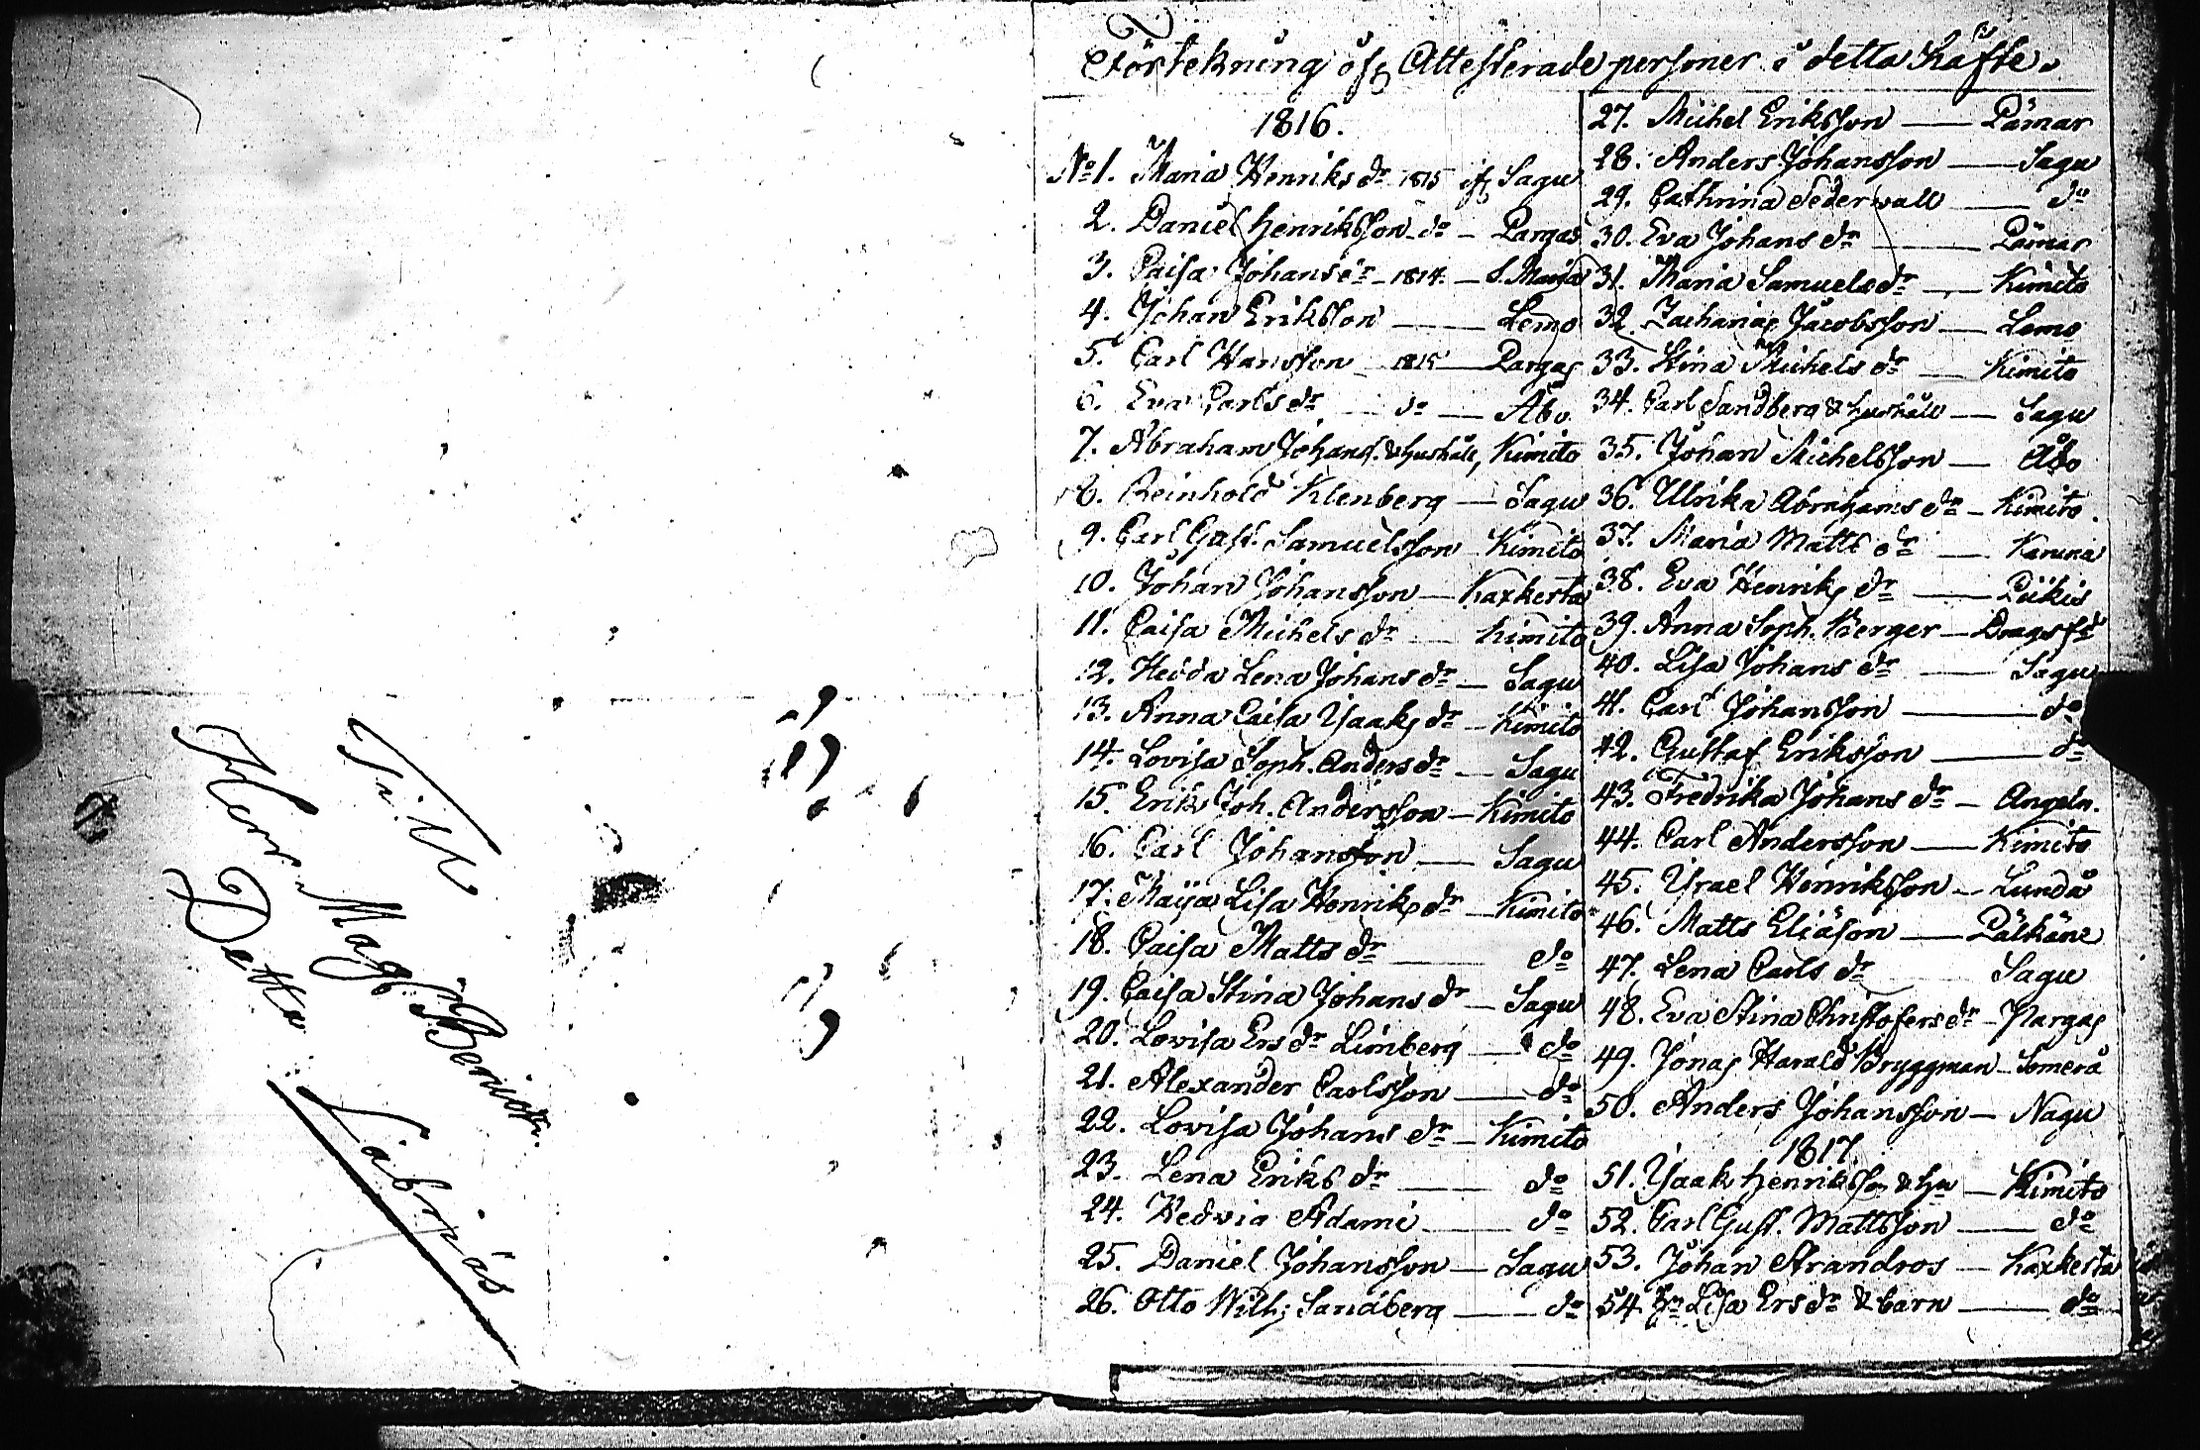 Till
Herr Mag:
Detta
Förtekning öfr Attesterade personer i detta häfte.
1816.
No 1. Maria Henriks dr 1815 ifr Sagu
2. Daniel Henriksson do – Pargas
3. Caisa Johans dr – 1814. – S. Maria
4. Johan Eriksson — Lemo
5. Carl Hansson – 1815 — Pargas
6. Eva Carls dr — do — Åbo
7. Abraham Johans. & hushåll, Kimito
8. Reinhold Klenberg — Sagu
9. Carl Gust. Samuelsson Kimito
10. Johan Johansson — Kaxkerta
11. Caisa Michels dr — Kimito
12. Hedda Lena Johans dr — Sagu
13. Anna Caisa Ysaaks dr – Kimito
14. Lovisa Soph. Anders dr — Sagu
15. Erik Joh. Andersson — Kimito
16. Carl Johansson — Sagu
17. Maija Lisa Henriks dr — Kimito
18. Caisa Matts dr — do
19. Caisa Stina Johans dr — Sagu
20. Lovisa Ers dr Limberg — do
21. Alexander Carlsson — do
22. Lovisa Johans dr — Kimito
23. Lena Eriks dr — do
24. Hedvig Adami — do
25. Daniel Johansson — Sagu
26. Otto Wilh; Sandberg — do
27. Michel Eriksson — Pämar
28. Anders Johansson — Sagu
29. Cathrina Sederwall — do
30. Eva Johans dr — Pämar
31. Maria Samuels dr — Kimito
32. Zacharias Jacobsson — Lemo
33. Stina Michels dr — Kimito
34. Carl Sandberg & hushåll — Sagu
35. Johan Michelsson — Åbo
36. Ulrika Abrahams dr – Kimito.
37. Maria Matts dr — Karuna
38. Eva Henriks dr — Piikis
39. Anna Soph. Berger — Dragsfd
40. Lisa Johans dr — Sagu
41. Carl Johansson — do
42. Gustaf Eriksson — do
43. Fredrika Johans dr – Angeln.
44. Carl Andersson — Kimito
45. Ysrael Henriksson — Lundå
46. Matts Eliäson — Pälkäne
47. Lena Carls dr Sagu
48. Eva Stina Christofers dr – Pargas
49. Jonas Harald Bryggman – Somerå
50. Anders Johansson — Nagu
1817.
51. Ysaak Henriksson & hu — Kimito
52. Carl Gust. Mattsson — do
53. Johan Strandros — Kaxkerta
54. Lisa Ers dr & barn — do